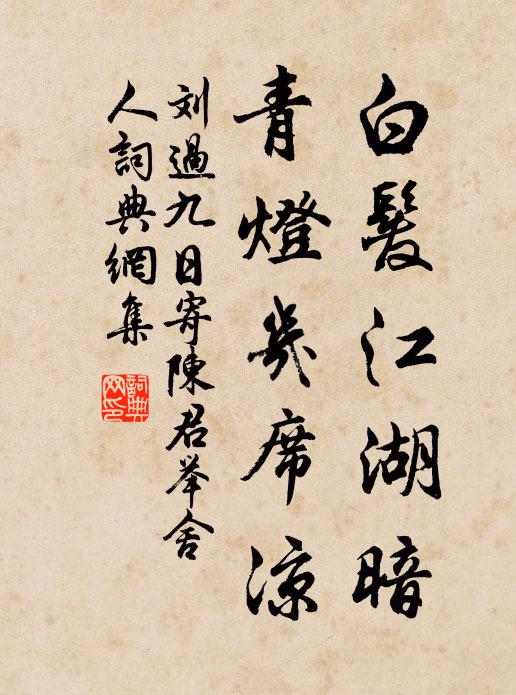 白髮江湖暗
青燈幾席凉
刘過九日寄陳君举舍
人詞典網集
詞典
网印